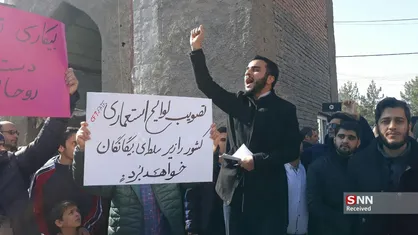 بیکاری
دست
روحا
تصویب لوایح استعماری
کشور را زیر سلطه‌ی بیگانگان
خواهد برد
SNN
Received